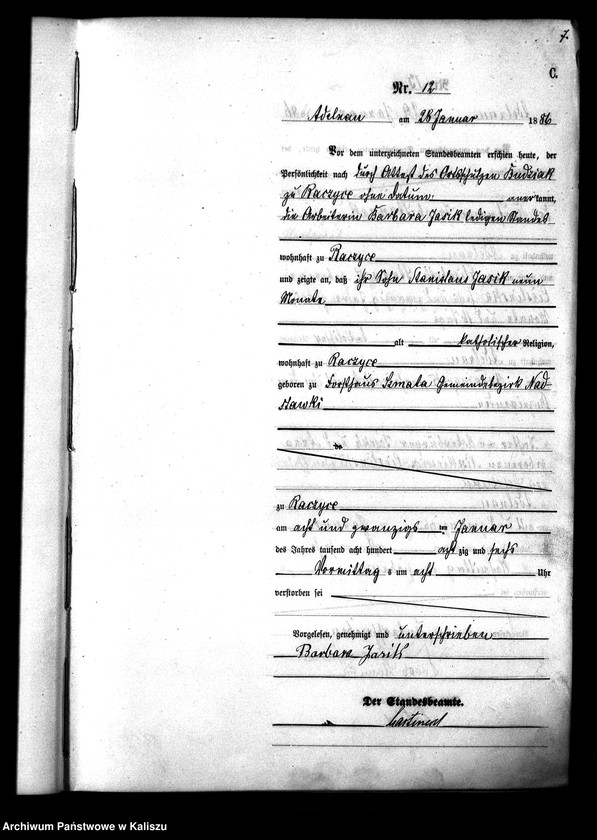 7.
C.
Nr. 12
Adelnau am 28 Januar 1886
Vor dem unterzeichneten Standesbeamten erschien heute, der
Persönlichkeit nach durch Attest des Ortsschulzen Kudziak
zu Raczyce ohne Datum anerkannt,
die Arbeiterin Barbara Jasik ledigen Standes
wohnhaft zu Raczyce
und zeigte an, daß ihr Sohn Stanislaus Jasik neun
Monate
alt katholischer Religion,
wohnhaft zu Raczyce
geboren zu Forsthaus Szmata Gemeindebezirk Nad
stawki
zu Raczyce
am acht und zwanzigs ten Januar
des Jahres tausend acht hundert acht zig und sechs
Vormittag s um acht Uhr
verstorben sei
Vorgelesen, genehmigt und unterschrieben
Barbara Jasik
Der Standesbeamte.
Archiwum Państwowe w Kaliszu